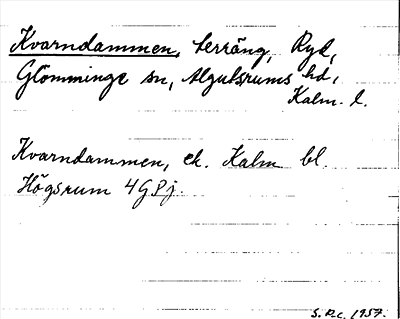 Kvarndammen, terräng, Ryd,
Glömminge sn, Algutsrums hd,
Kalm. l.
Kvarndammen, ek. Kalm bl.
Högsrum 4G9j.
S. Rc. 1957.